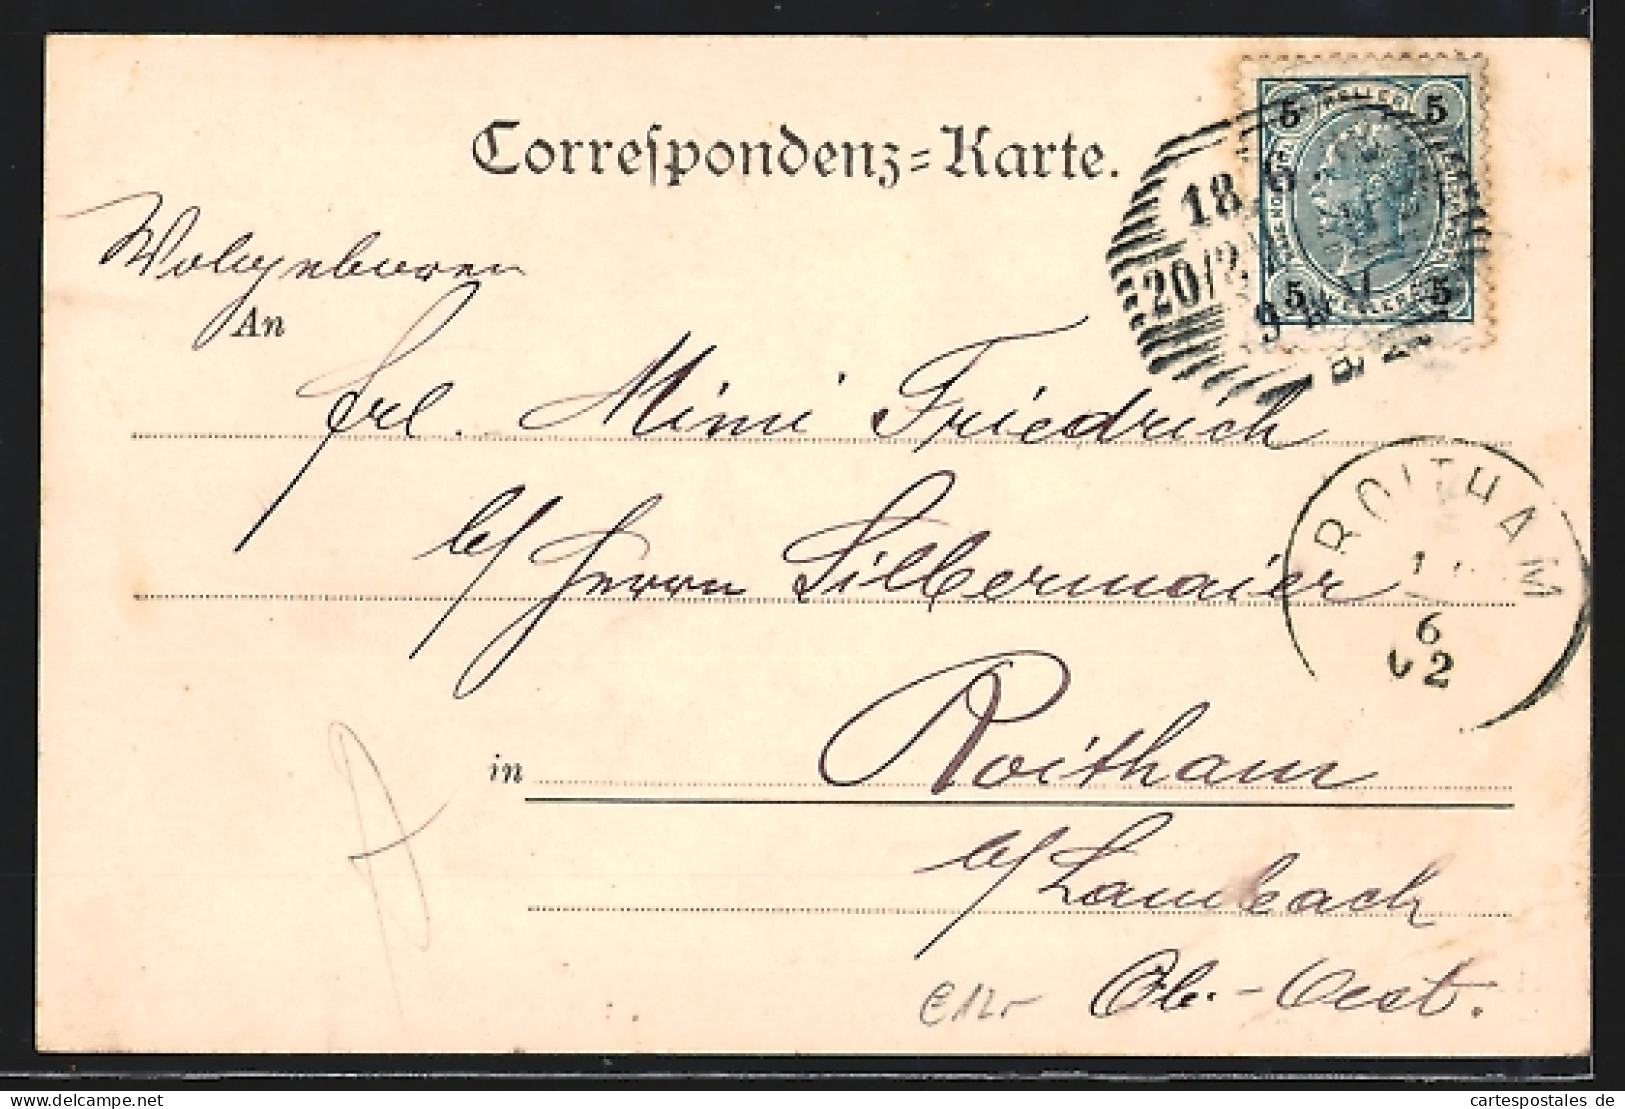 Correspondenz=Karte.
Wolgeboren
An
Frl. Mimi Friedrich
b/ Herrn Silbermaier
in Roitham
b/ Lambach
Ob.-Oest.
5 5
5 5
18 6
20/2
ROITHAM
6
02
cartespostales de